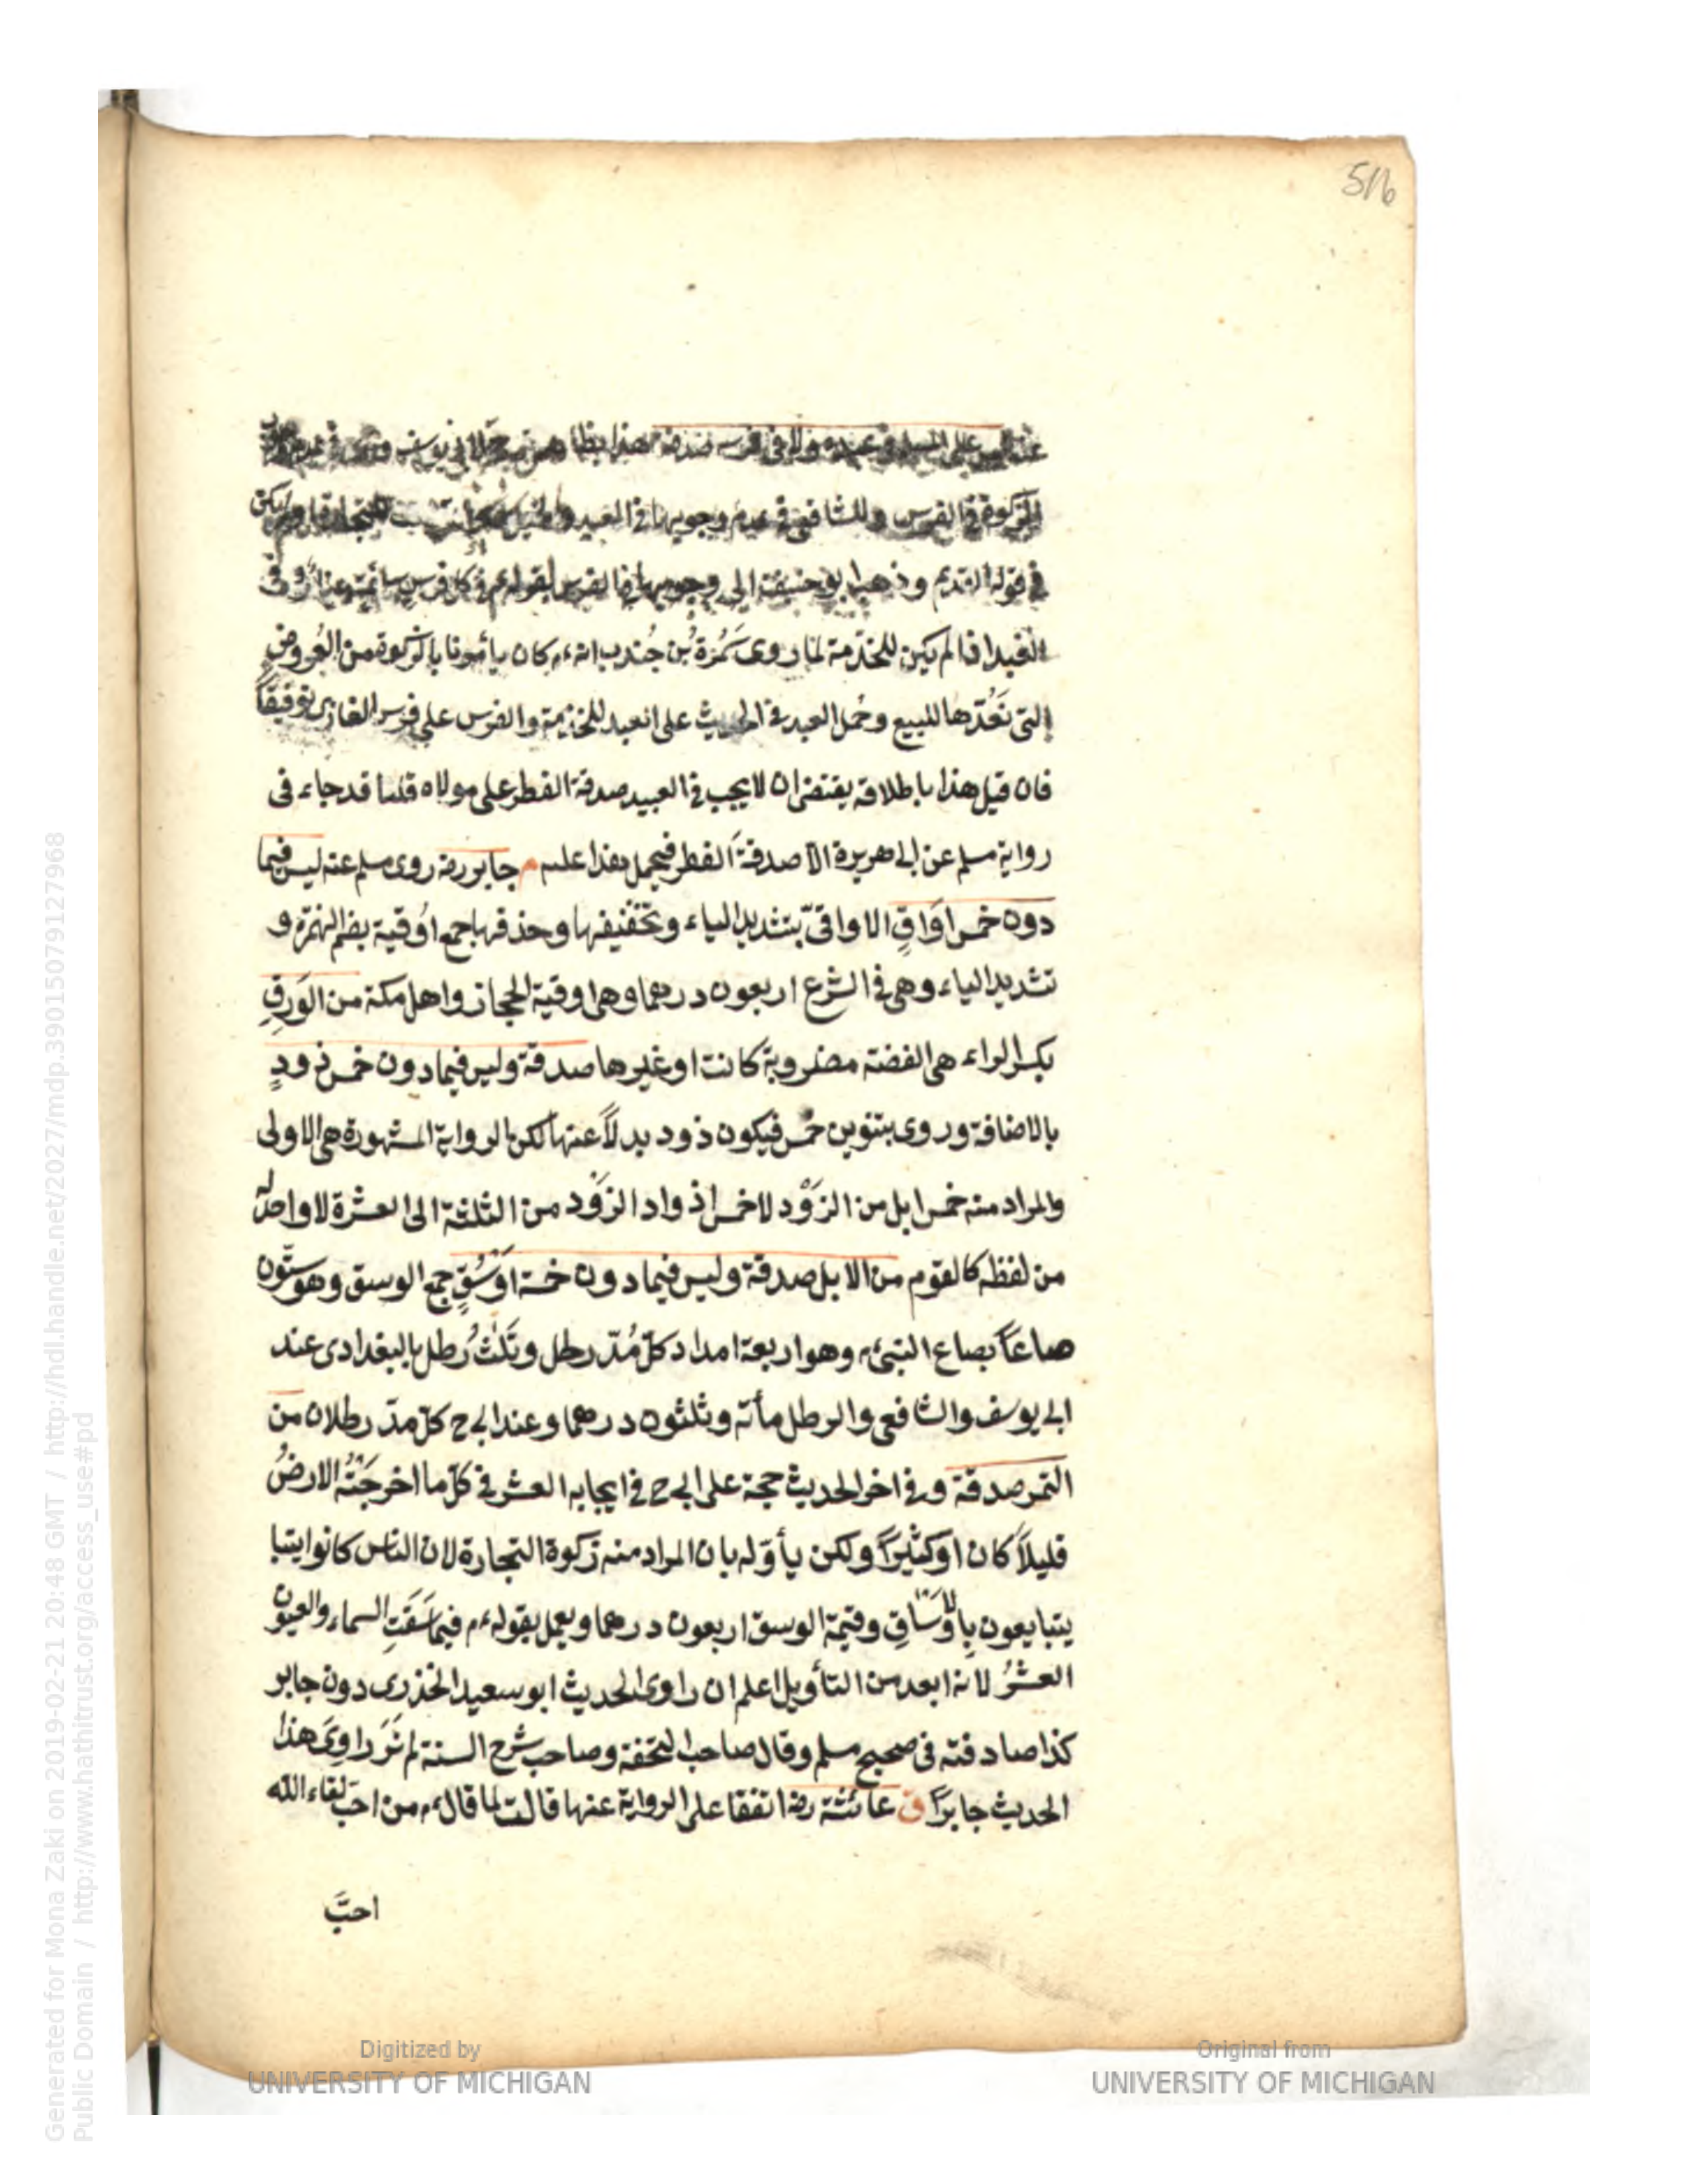 516
عنه ليس على المسلم في عبده ولا في فرسه صدقة هذا بظاهره حجة لابي يوسف ومحمد في عدم وجوب
الزكوة في الفرس وللشافعي في عدم وجوبها في العبيد والخيل
في قوله القديم وذهب ابو حنيفة الى وجوبها في الفرس لقوله ءم في كل فرس سائمة دينار وفى
العبد اذا لم يكن للخدمة لما روى سَمُرَة بن جُندب انه ءم كان يأمرنا بالزكوة من العُروض
التى نَعُدّها للبيع وحُمل العبد في الحديث على العبد للخدمة والفرس على فرس الغازى توفيقاً
فان قيل هذا باطلاقه يقتضى ان لا يجب في العبيد صدقة الفطر على مولاه قلنا قد جاء فى
رواية مسلم عن ابى هريرة الا صدقةَ الفطر فيحمل هذا عليه م جابر رضه روى مسلم عنه ليس فيما
دون خمس اَوَاقٍ الاواقىّ بتشديد الياء وتخفيفها وحذفها جمع اُوقية بضم الهمزة و
تشديد الياء وهى في الشرع اربعون درهما وهى اوقية الحجاز واهل مكة من الوَرِقِ
بكسر الراء هى الفضة مضروبة كانت او غيرها صدقة وليس فيما دون خمس ذودٍ
بالاضافة وروى بتنوين خمس فيكون ذود بدلاً عنها لكن الرواية المشهورة هى الاولى
والمراد منه خمس ابل من الذَوْد لا خمس اذواد الذَوْد من الثلثة الى العشرة لا واحد له
من لفظه كالقوم من الابل صدقة وليس فيما دون خمسة اَوْسُقٍ جمع الوسق وهو ستّون
صاعاً بصاع النبى ءم وهو اربعة امداد كلّ مُدّ رطل وثلُثُ رطل بالبغدادى عند
ابى يوسف والشافعى والرطل مأئة وثلثون درهما وعند ابى ح كلّ مدّ رطلان من
التمر صدقة وفى اخر الحديث حجة على ابى ح فى ايجابه العشر فى كلّ ما اخرجَتْهُ الارضُ
قليلاً كان او كثيراً ولكن يأوّله بان المراد منه زكوة التجارة لان الناس كانوا يتبا
يتبايعون بِالاَوْسَاقِ وقيمة الوسق اربعون درهما ويعمل بقوله ءم فيما سَقَتِ السماء والعيون
العشرُ لانه ابعد من التأويل اعلم ان راوى الحديث ابو سعيد الخذرى دون جابر
كذا صادفته فى صحيح مسلم وقال صاحب التحفة وصاحب شرح السنة لم نَرَ راوِىَ هذا
الحديث جابراً ق عائشة رضه اتفقا على الرواية عنها قالت لما قال ءم من احبّ لقاء الله
احبَّ
Digitized by
UNIVERSITY OF MICHIGAN
Original from
UNIVERSITY OF MICHIGAN
Generated for Mona Zaki on 2019-02-21 20:48 GMT / http://hdl.handle.net/2027/mdp.39015079127968
Public Domain / http://www.hathitrust.org/access_use#pd